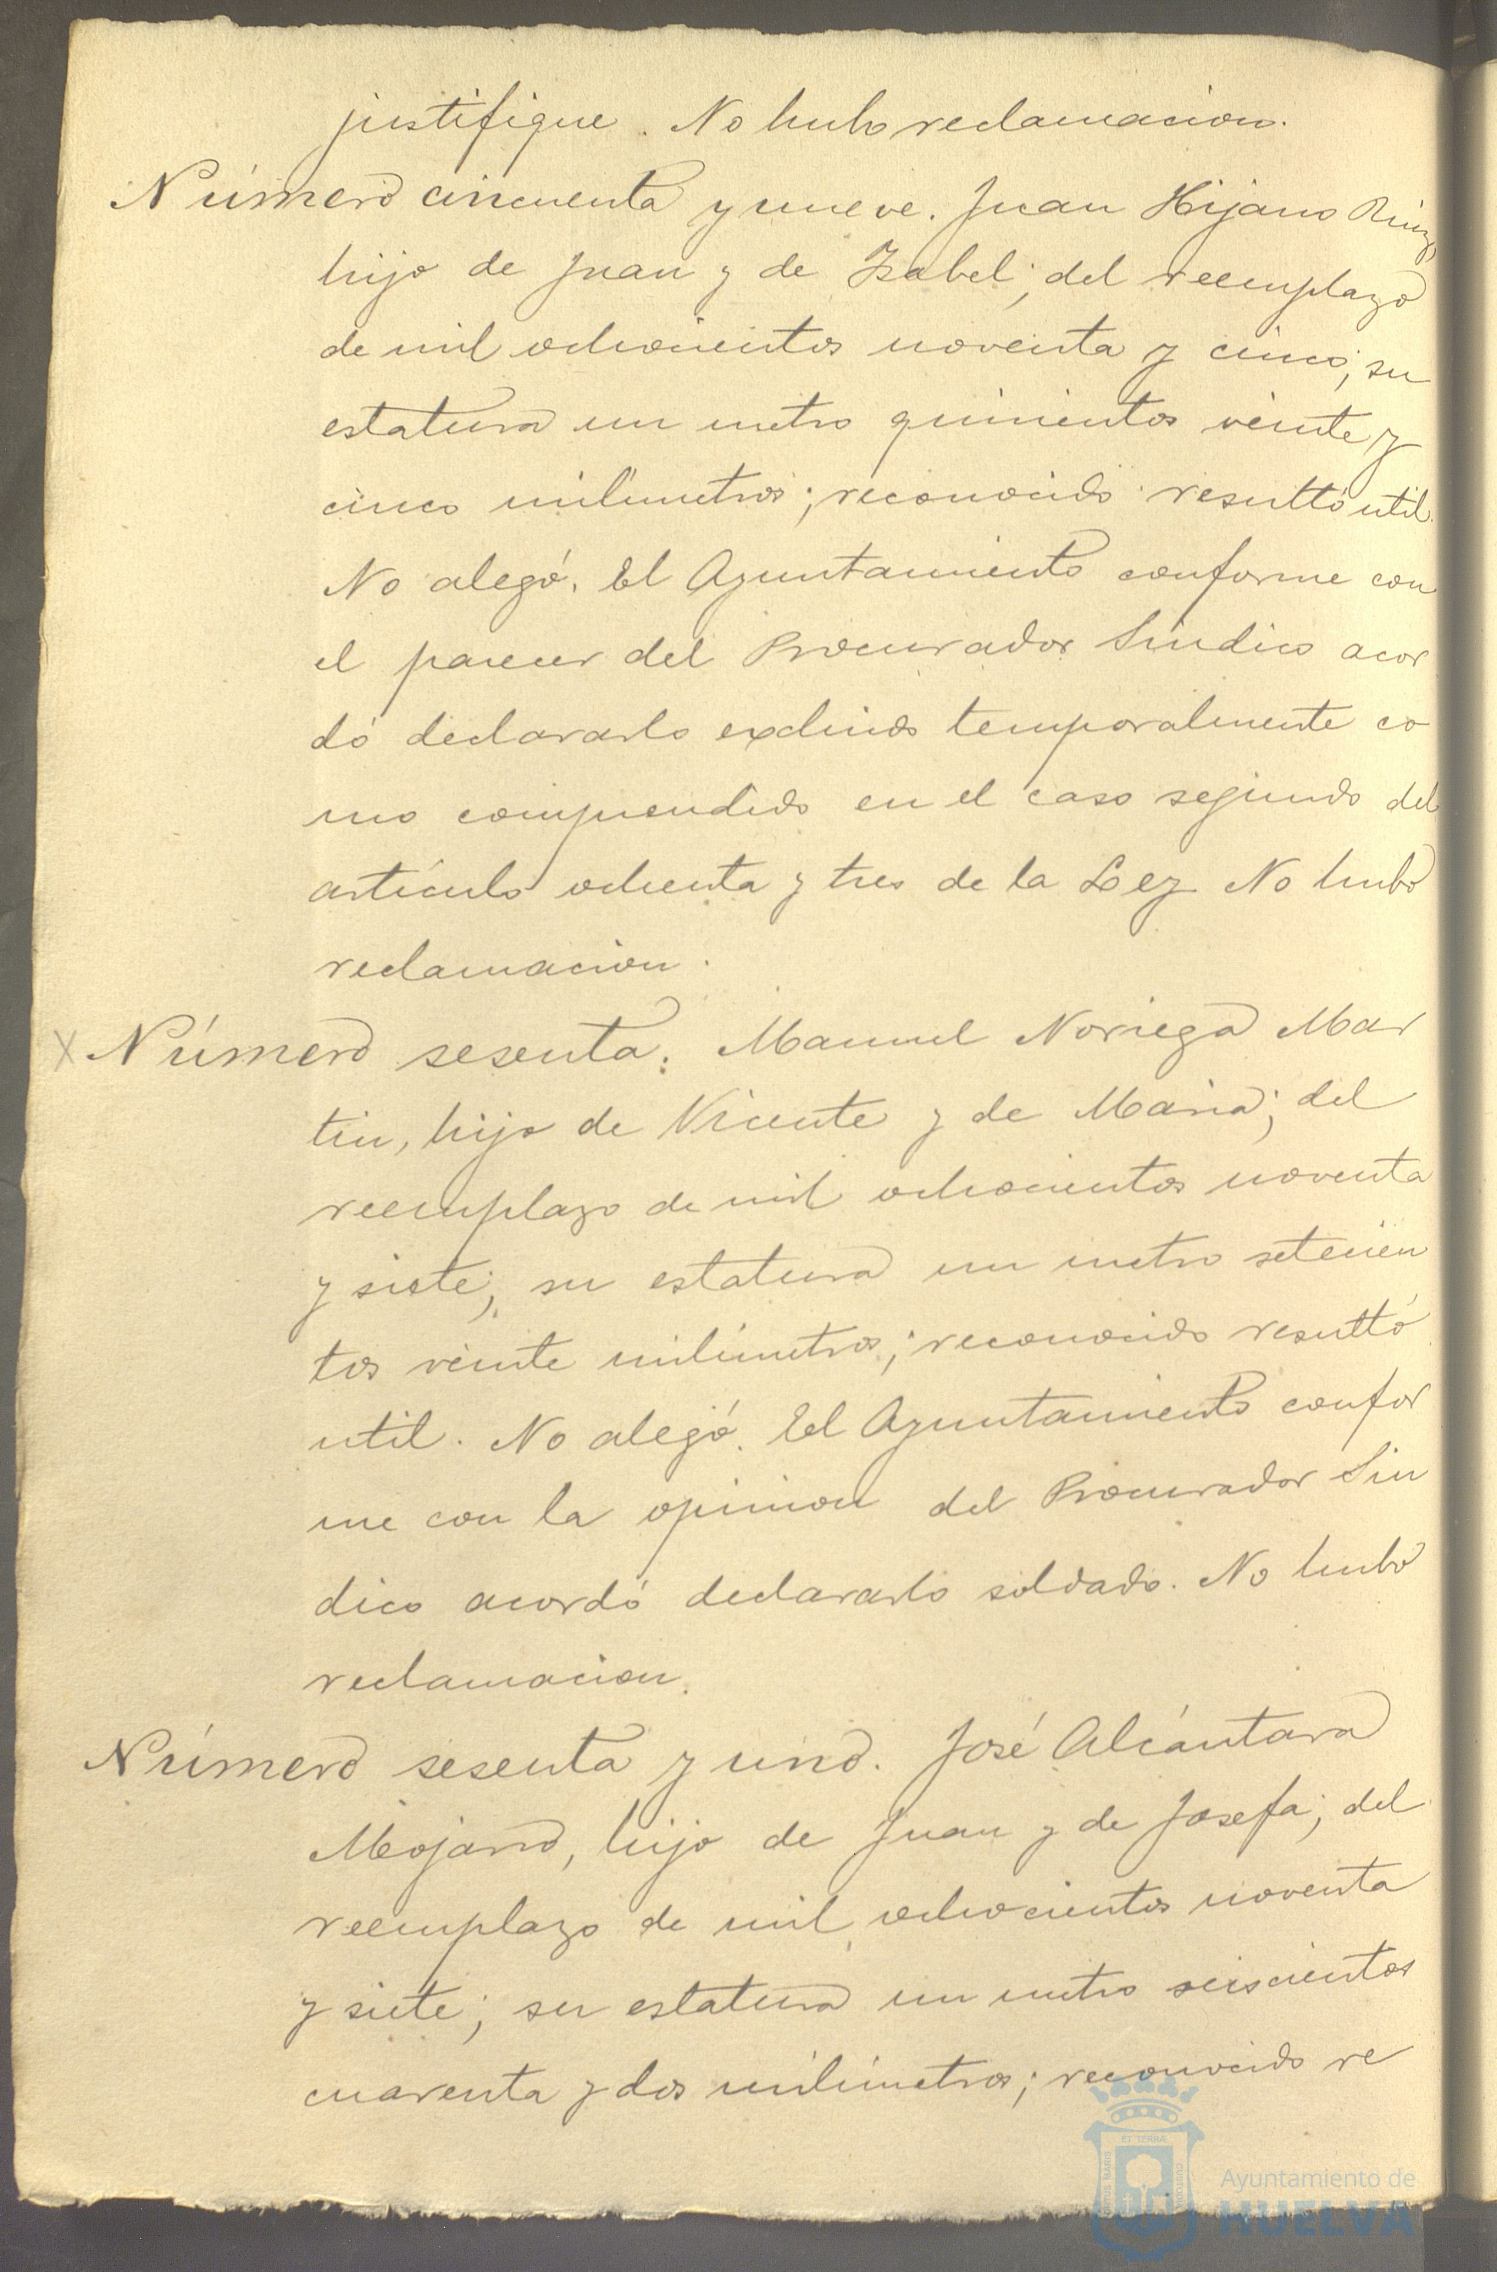 justifique. No hubo reclamacion.
Número cincuenta y nueve. Juan Hijano Ruiz,
hijo de Juan y de Isabel; del reemplazo
de mil ochocientos noventa y cinco; su
estatura un metro quinientos veinte y
cinco milímetros; reconocido resultó util.
No alegó. El Ayuntamiento conforme con
el parecer del Procurador Síndico acor
dó declararlo excluido temporalmente co
mo comprendido en el caso segundo del
artículo ochenta y tres de la Ley No hubo
reclamacion.
X Número sesenta. Manuel Noriega Mar
tin, hijo de Vicente y de Maria; del
reemplazo de mil ochocientos noventa
y siete; su estatura un metro setecien
tos veinte milímetros; reconocido resultó
util. No alegó. El Ayuntamiento confor
me con la opinion del Procurador Sin
dico acordó declararlo soldado. No hubo
reclamacion.
Número sesenta y uno. José Alcántara
Mojarro, hijo de Juan y de Josefa; del
reemplazo de mil ochocientos noventa
y siete; su estatura un metro seiscientos
cuarenta y dos milímetros; reconocido re
Ayuntamiento de
HUELVA